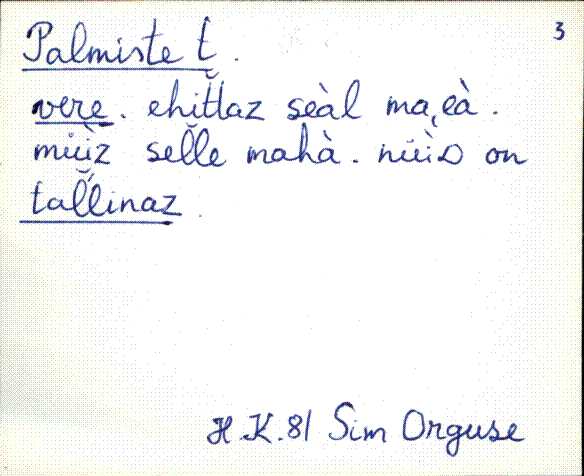 3
Palmiste t̆.
vere. ehitt̆laz seàl ma,eà.
müìz sel̆le mahà. nüìD on
tal̆linaz.
H.K.81 Sim Orguse